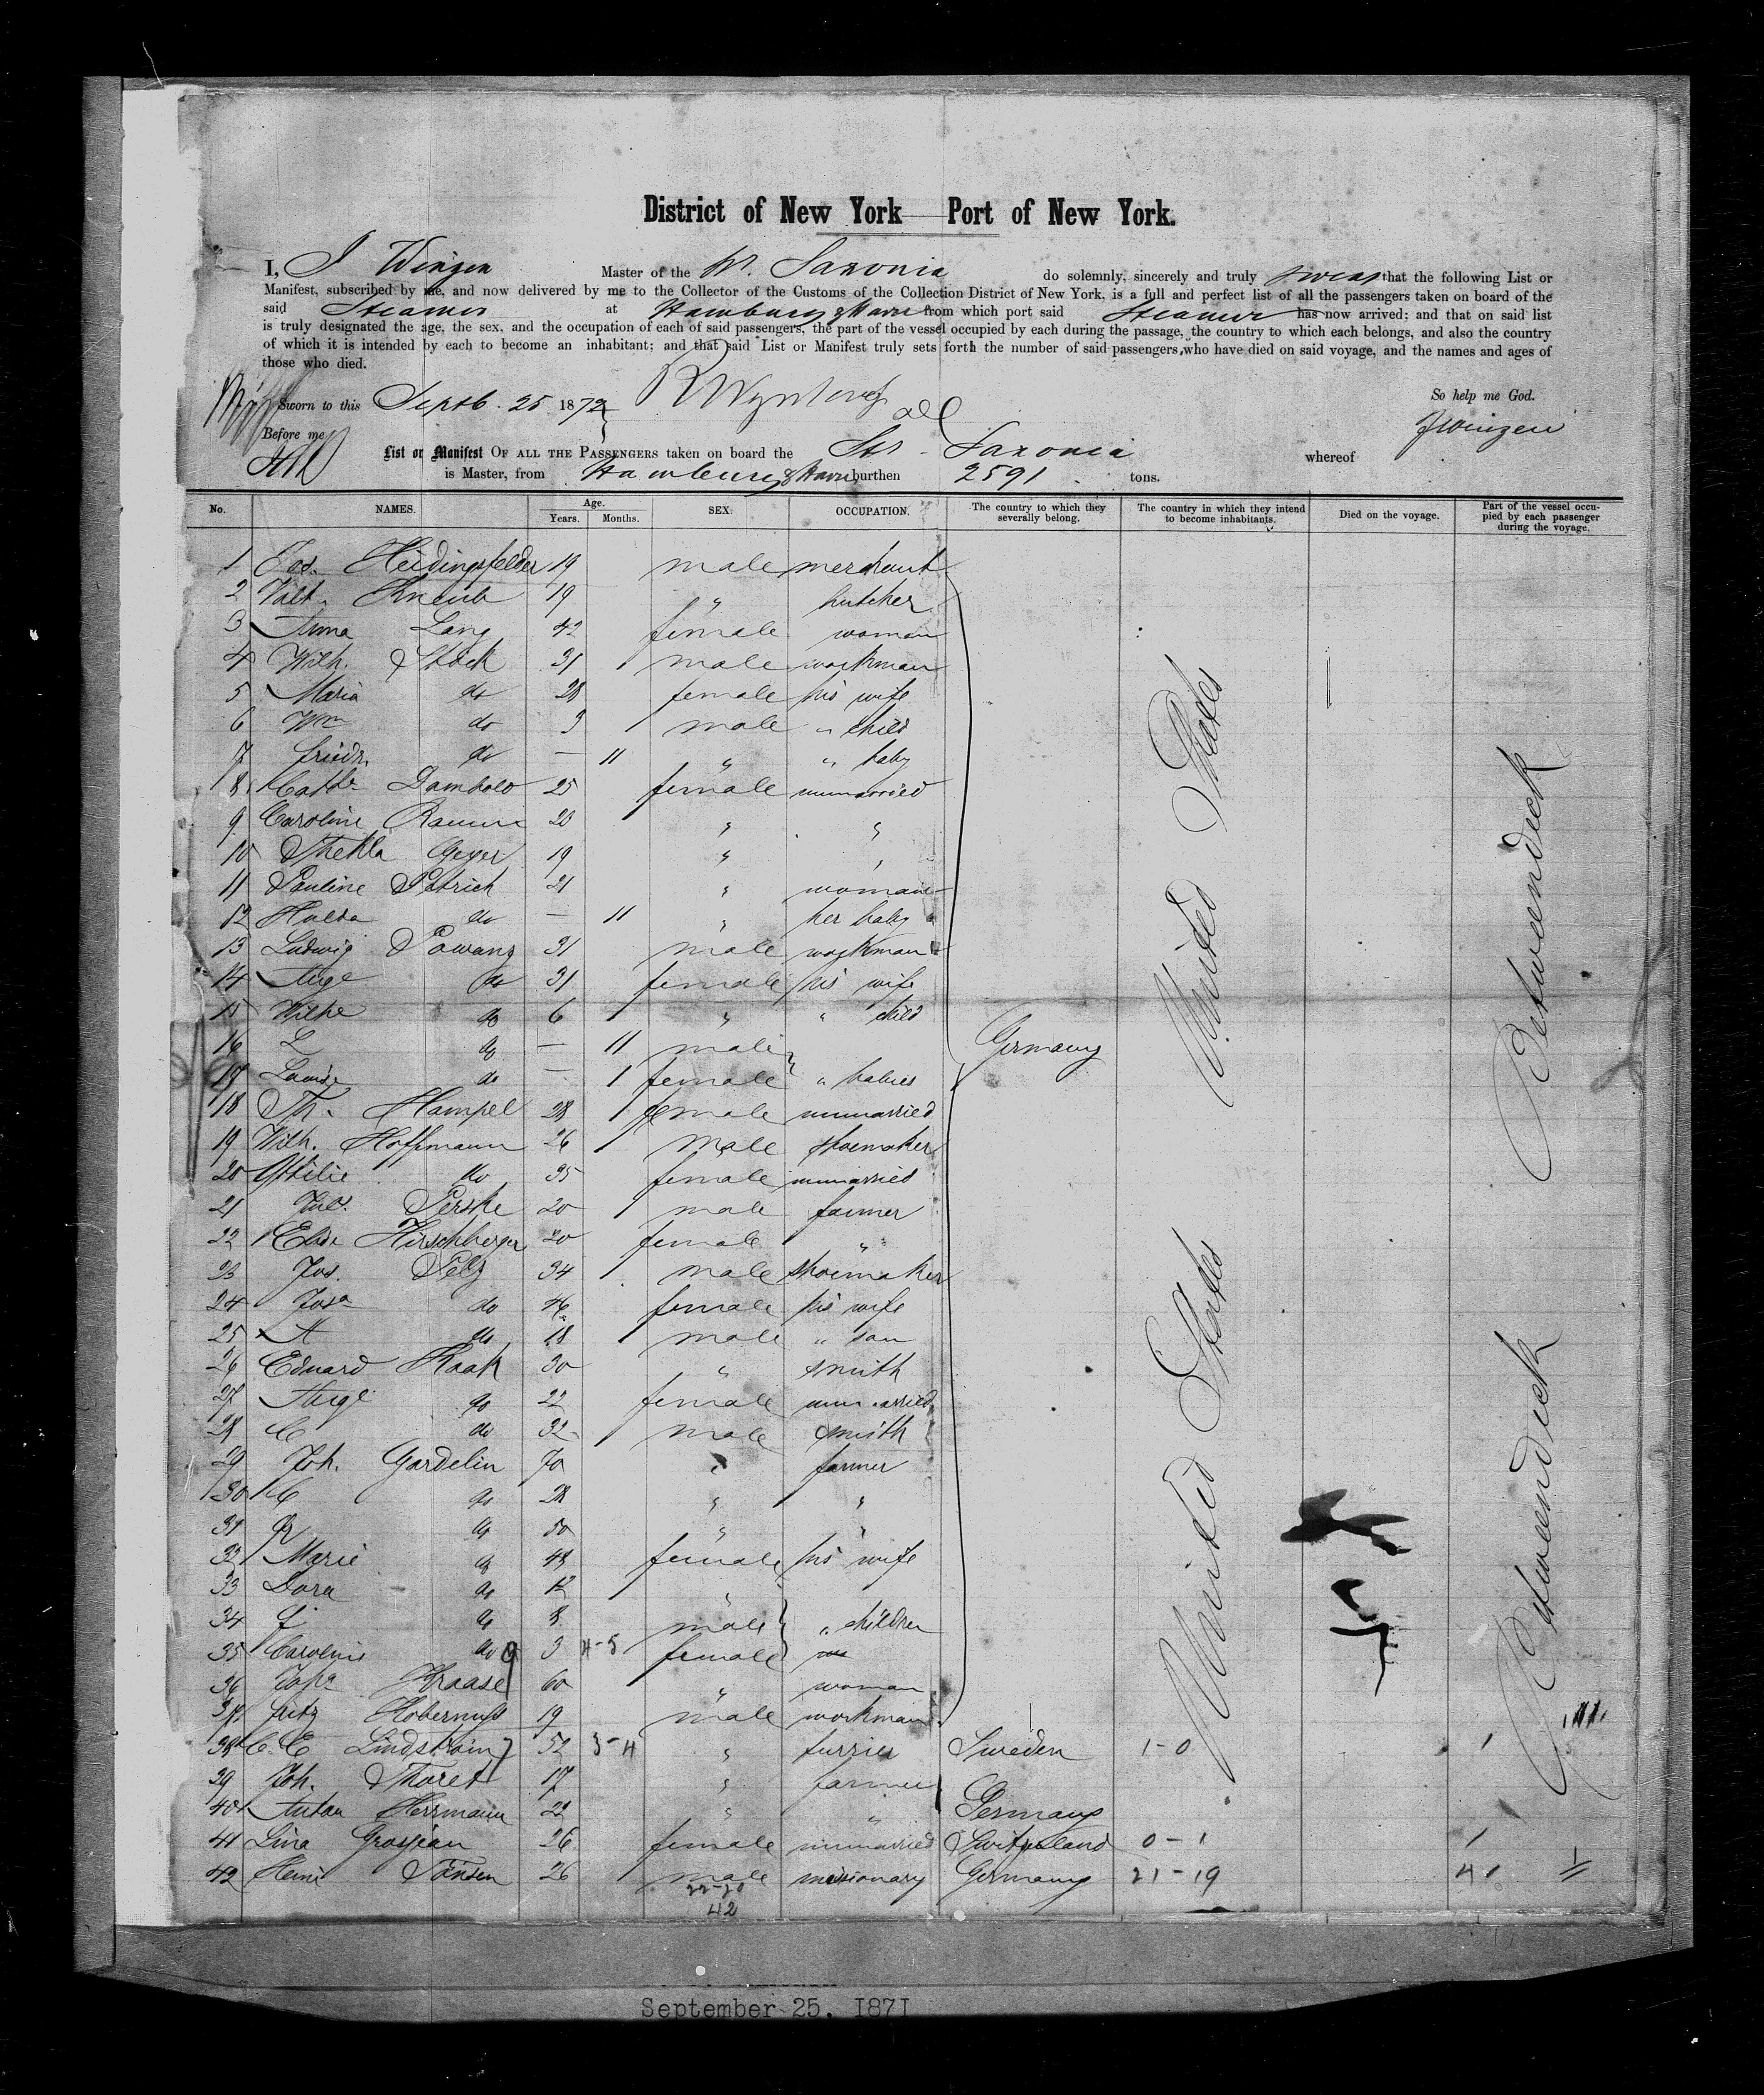 District of New York Port of New York.
I, J Winzen Master of the Str. Saxonia do solemnly, sincerely and truly swear that the following List or
Manifest, subscribed by me, and now delivered by me to the Collector of the Customs of the Collection District of New York, is a full and perfect list of all the passengers taken on board of the
said Steamer at Hamburg & Havre from which port said Steamer has now arrived; and that on said list
is truly designated the age, the sex, and the occupation of each of said passengers, the part of the vessel occupied by each during the passage, the country to which each belongs, and also the country
of which it is intended by each to become an inhabitant; and that said List or Manifest truly sets forth the number of said passengers, who have died on said voyage, and the names and ages of
those who died.
So help me God.
Sworn to this Septb. 25 1872
JWinzen
Before me
List or Manifest OF ALL THE PASSENGERS taken on board the Str. Saxonia whereof
is Master, from Hamburg & Havre burthen 2591 tons.
No. NAMES. Age. Years. Months. SEX. OCCUPATION. The country to which they severally belong. The country in which they intend to become inhabitants. Died on the voyage. Part of the vessel occupied by each passenger during the voyage.
1 Jos. Heidingsfelder 19 male merchant
2 Valt. Kneib 19 " butcher
3 Anna Lang 42 female woman
4 Wilh. Stock 31 male workman
5 Maria do 28 female his wife
6 Wm do 3 male " child
7 Friedr. do — 11 " " baby
8 Cathe Dambold 25 female unmarried
9 Caroline 20 " "
10 Thekla Geyer 19 " "
11 Pauline Petrich 21 " woman
12 Hulda do — 11 " her baby
13 Ludwig Powanz 31 male workman
14 Auge do 31 female his wife
15 Wilhe do 6 " " child
16 L do — 11 male
Germany
United States
Betweendeck
17 Louise do — 1 female " babies
18 Th. Hampel 28 female unmarried
19 Wilh. Hoffmann 26 male shoemaker
20 Ottilie do 35 female unmarried
21 Jul. Perske 20 male farmer
22 Elise Hirschberger 20 female "
23 Jos. Pelz 34 male shoemaker
24 Josa do 46 female his wife
25 A do 18 male " son
26 Eduard Haak 30 " smith
27 Auge do 22 female unmarried
28 C do 32 male smith
29 Joh. Gardelin 70 " farmer
30 C do 28 " "
31 do 50 " "
32 Marie do 48 female his wife
33 Dora do 12 "
34 do 8 male " children
35 Caroline do 3 4-5 female
36 Joha Haase 60 " woman
37 Fritz Hobernuss 19 male workman
United States
Betweendeck
38 C. E Lindstroin 52 3-4 " furrier Sweden 1-0 1
39 Joh. Thoret 17 " farmer
40 Anton Herrmann 22 " " Germany
41 Lina Grosjean 26 female unmarried Switzerland 0-1 1
42 Heinr Jönsen 26 male missionary Germany 21-19 41
22-20
42
September 25, 1871